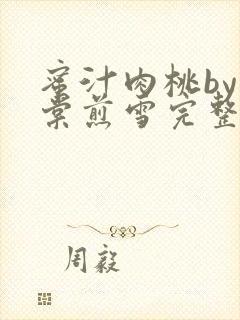 蜜汁肉桃by
棠煎雪完整
周毅